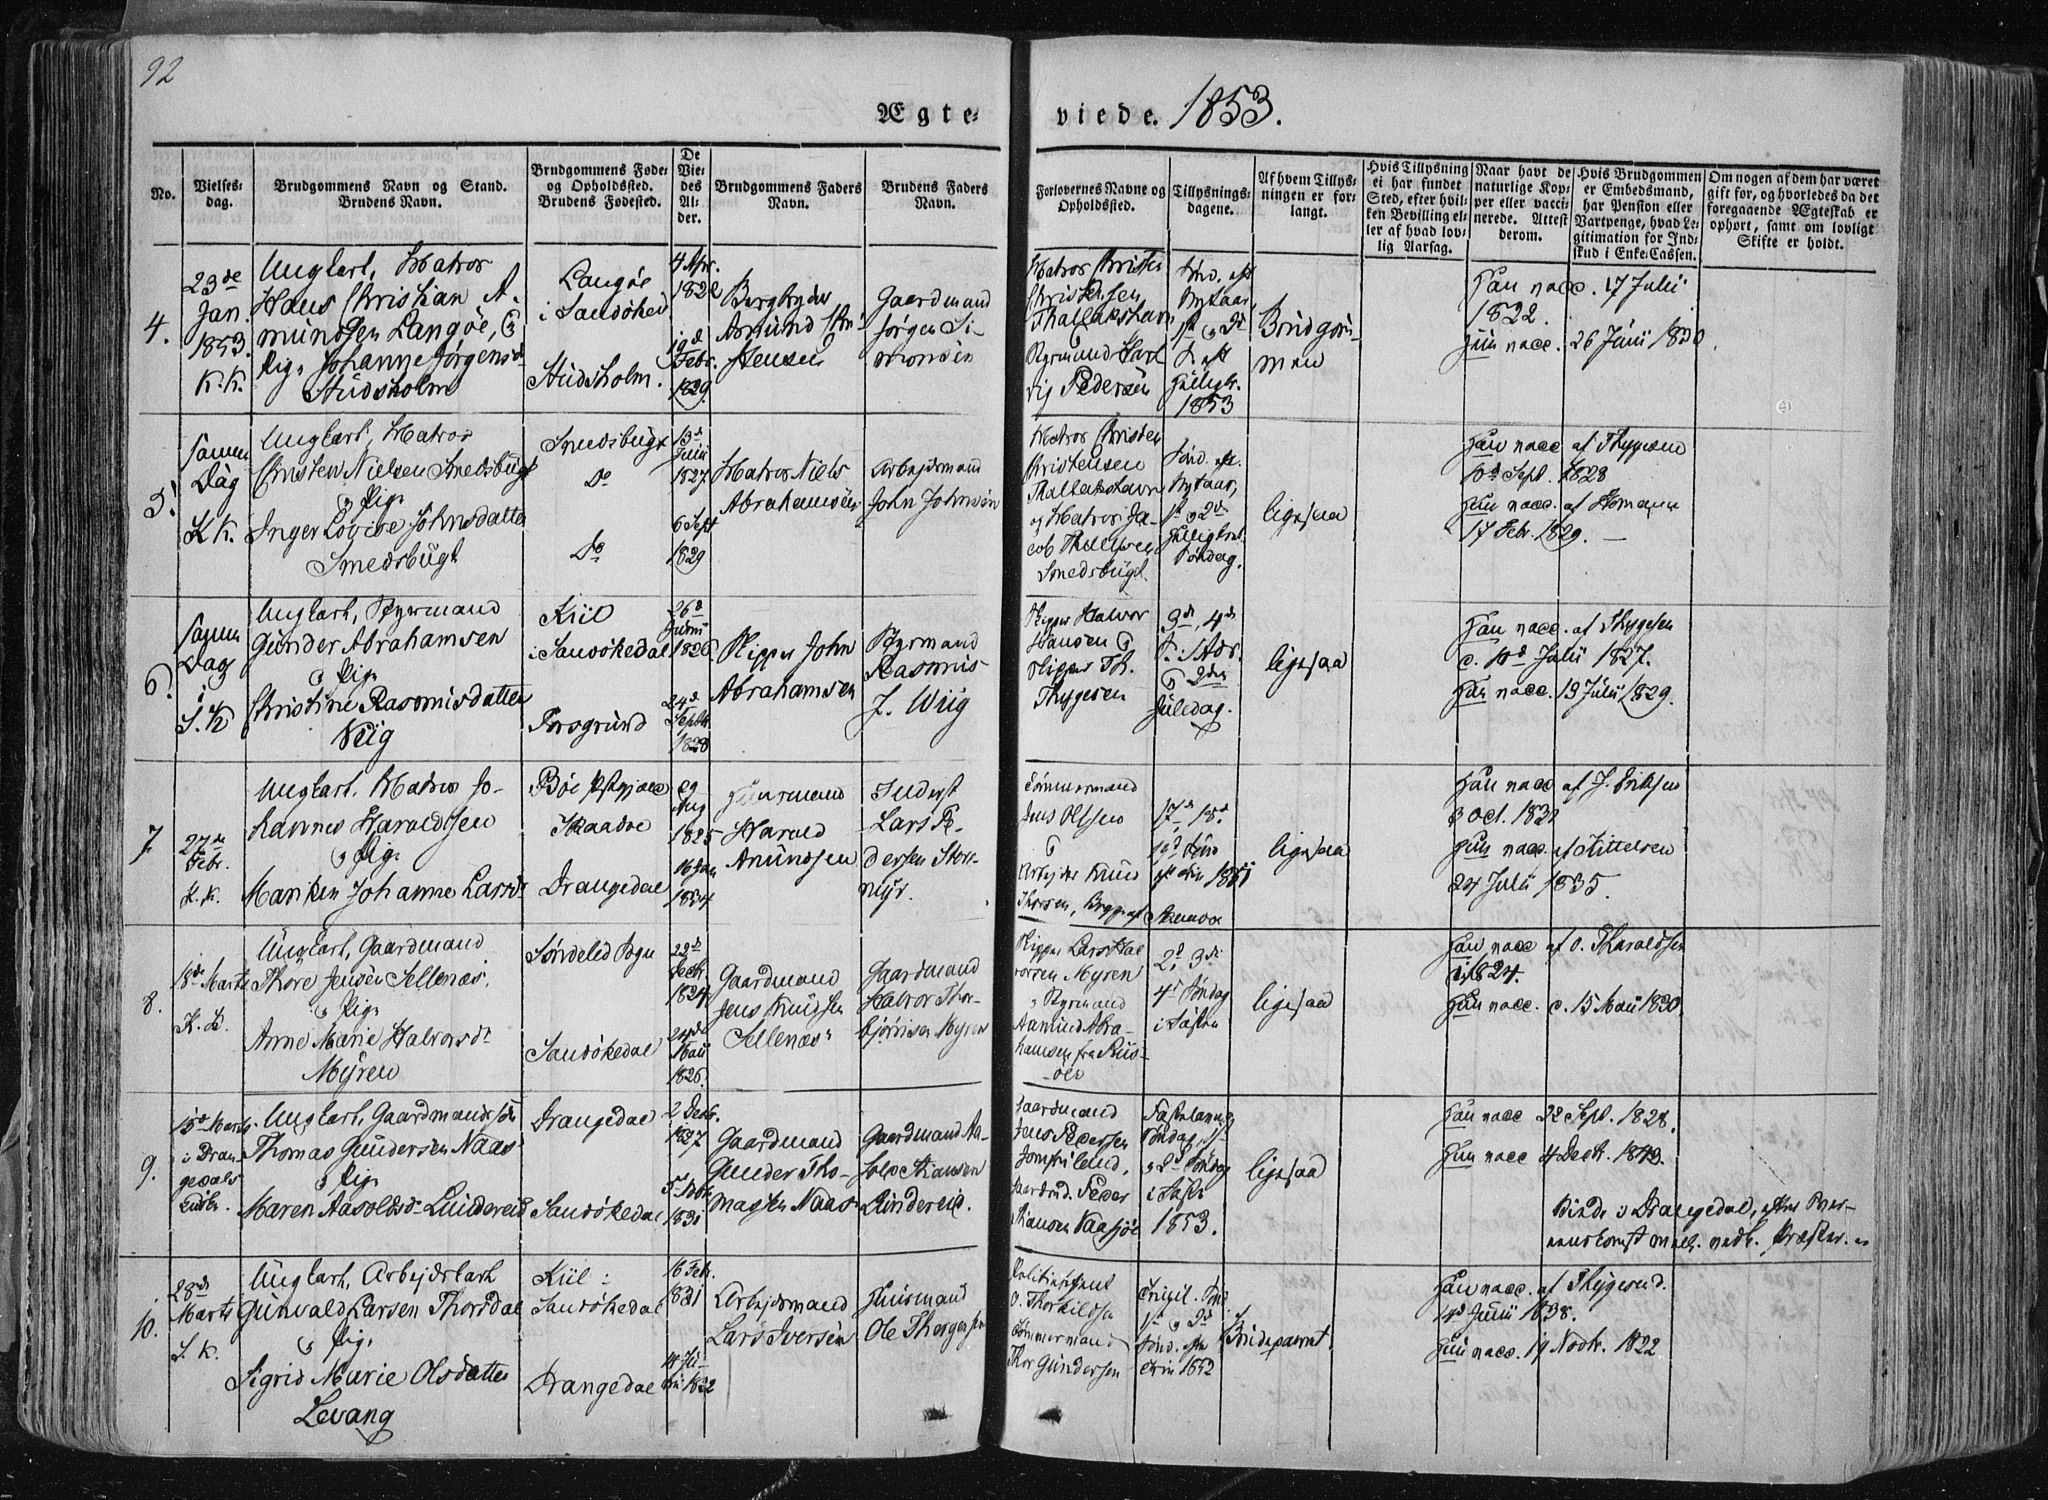 92
Ægte-
viede. 1853.
No.
Vielses-
dag.
Brudgommens Navn og Stand.
Brudens Navn.
Brudgommens Føde-
og Opholdssted.
Brudens Fødested.
De
Vie-
des
Al-
der.
Brudgommens Faders
Navn.
Brudens Faders
Navn.
Forlovernes Navne og
Opholdssted.
Tillysnings-
dagene.
Af hvem Tillys-
ningen er for-
langt.
Hvis Tillysning
ei har fundet
Sted, efter hvil-
ken Bevilling el-
ler af hvad lov-
lig Aarsag.
Naar havt de
naturlige Kop-
per eller vacci-
nerede. Attest
derom.
Hvis Brudgommen
er Embedsmand,
har Pension eller
Vartpenge, hvad Le-
gitimation for Ind-
skud i Enke-Cassen.
Om nogen af dem har været
gift før, og hvorledes da det
foregaaende Ægteskab er
ophørt, samt om lovligt
Skifte er holdt.
4.
23de
Jan.
1853.
K. K.
Ungkarl, Matros
Hans Christian A-
mundsen Langøe, &
Pige Johanne Jørgensd.
Studsholm
Langøe
i Sandøked
Studsholm.
4 Apr.
1822
19d
Febr.
1829.
Asmund
Gaardmand
Jørgen Si-
monsen
Matros Christen
Christensen
Thallakshavn
Pedersen
Sønd. eft
Nytaar,
1st & 2d
S. eft
Helligtr.
1853
Brudgom-
men
Han vacc. 17 Juli
1822.
Hun vacc. 26 Juni 1830.
5.
Samme
Dag
K K.
Ungkarl, Matros
Christen Nielsen Smedsbugt
& Pige
Inger Lovise Johnsdatter
Smedsbugt
Smedsbugt
Do
Do
13d
Juni
1827
6 Sept
1829
Matros Niels
Abrahamsen
Arbejdsmand
John Johnsen
Matros Christen
Christensen
Thallakshavn
og Matros Ja-
cob
Smedsbugt.
Sønd. eft.
Nytaar,
1st & 2den
Helligtrek.
Søndag.
ligesaa
Han vacc. af Thygesen
10d Sept. 1828
Hun vacc. af Homann
17 Febr. 1829.
6.
Samme
Dag
i
S. K
Ungkarl, Styrmand
Gunder Abrahamsen
& Pige
Christine Rasmusdatter
Wiig
Kiil
i Sandøkedal
Porsgrund
26d
Juni
1826.
24d
Septbr.
1828
Skipper John
Abrahamsen
Styrmand
Rasmus
J. Wiig
Skipper Halvor
Hansen &
Skipper Th.
Thygesen
3de, 4de
S. i Adv.
& 2den
Juledag.
ligesaa
Han vacc. af Thygesen
c. 10d Juli 1827.
Hun vacc. 13 Juli 1829.
7.
27de
Febr.
K. K.
Ungkarl, Matros Jo-
hannes Haraldsen
& Pige
Mariken Johanne Larsd.
Skaadøe
Drangedal
29
Aug
1825
16 Jan
1834
Huusmand
Harald
Amundsen
Inderst
Lars Pe-
dersen Stor-
myr.
Tømmermand
Jens Olsen
&
Arbejder Knud
Thorsen,
17d, 18d
19d Sønd
eft Trin 1851
ligesaa
Han vacc af J. Eriksen
3 Oct. 1832
Hun vacc. af Tittelsen
24 Juli 1835.
8.
18de Marts
K. K.
Ungkarl, Gaardmand
Thore Jensen Sellenæs.
& Pige
Anne Marie Halvorsdr
Myren
Søndeled Sogn
Sandøkedal
22d
Decbr
1824
24de
Mai
1826.
Gaardmand
Jens Knudsen
Sellenæs
Gaardmand
Halvor Thor-
bjørnsen Myren
Skipper Lars Hal
vorsen Myren
& Styrmand
Aamund Abra-
hamsen fra Riis-
öer
2d, 3de
4d Søndag
i Fasten
ligesaa
Han vacc af O. Tharaldsen
i 1824.
Hun vacc. c. 15 Mai 1830.
9.
15d Marts
i Dran-
gedals
Kirke.
Ungkarl, Gaardmandssøn
Thomas Gundersen Naas
& Pige
Maren Aasoldsd Lindereid
Drangedal
Sandøkedal
2 Decbr.
1827
5 Nobr
1831
Gaardmand
Gunder Tho-
massen Naas
Gaardmand Aa-
solv Hansen
Lindereid.
Gaardmand
Jens Pedersen
Jomfruland,
Gaardmd. Peder
Hansen
Fastelavns
Søndag, 1st
& 2d Søndag
i Faste
1853.
ligesaa
Han vacc 22 Sept. 1828.
Hun vacc 4 Decbr. 1843.
Viede i Drangedal, efter Over-
eenskomst med vedk. Præster.
10.
28d
Marts
S. K.
Ungkarl, Arbejdskarl
Gunvald Larsen Thorsdal
& Pige
Sigrid Marie Olsdatter
Levang
Kiil :
Sandøkedal
Drangedal
16 Febr.
1821
18 Ju-
li 1822
Arbejdsmand
Lars Iversen
Huusmand
Ole Thorgersen
Politiebetjent
O. Thorkildsen
Tømmermand
Thor Gundersen
1st & 2d
Sønd. eft
Trin 1852
Brudeparret
Han vacc. af Thygesen.
18d Juni 1838.
Hun vacc. 19 Novbr. 1822